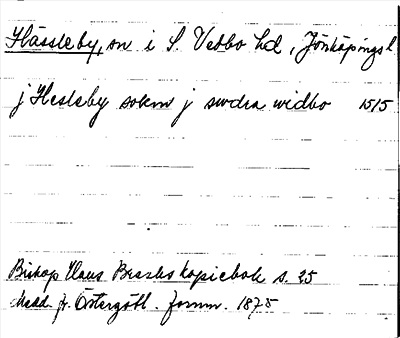 Hässleby, sn i S. Vedbo hd, Jönköpings l
j Hesleby sokm j swdra widbo 1515
Biskop Hans Brasks kopiebok s. 25
Medd. fr. Östergötl. fornm. 1875